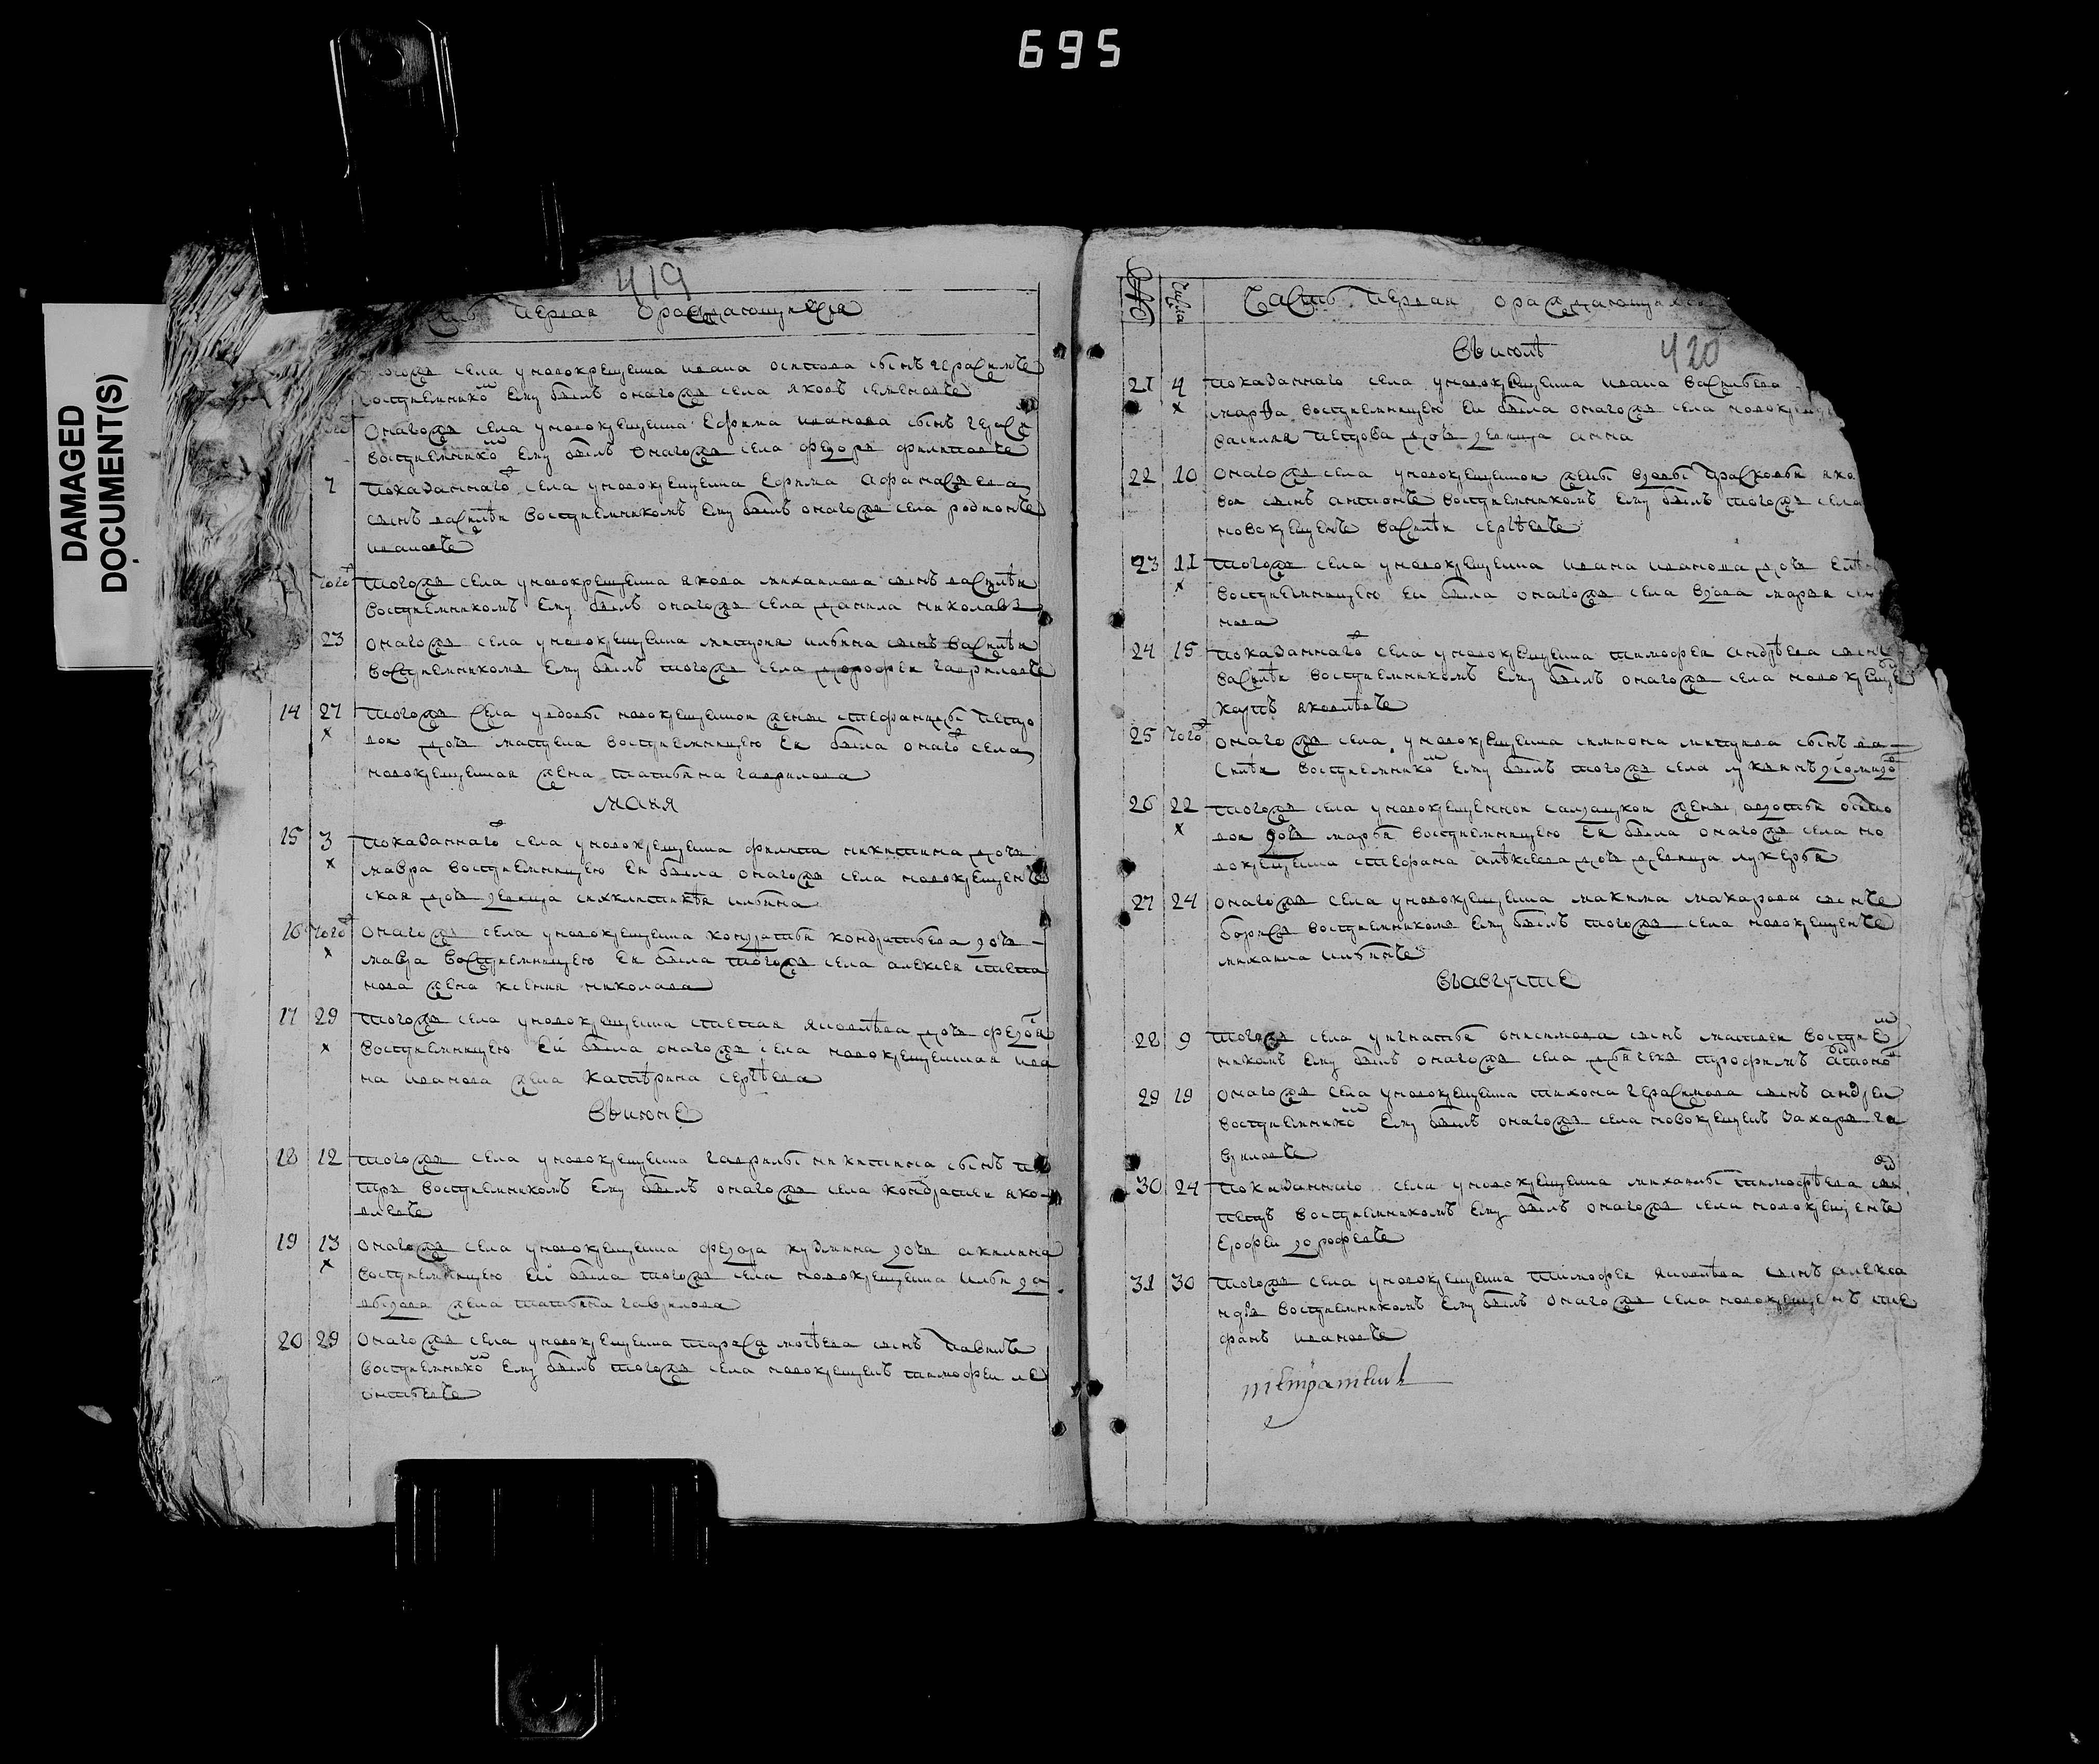 695
DAMAGED
DOCUMENT(S)
419
первая ораждающихся
тогожъ села уновокрещена ивана осипова сынъ герасимъ
восприемникомъ ему былъ оногожъ села яковъ семеновъ
оногожъ села уновокрещена ефима иванова сынъ
восприемникомъ ему былъ оногожъ села федоръ филиповъ
7 показанного села уновокрещена ефима афанасьева
сынъ василѣи восприемникомъ ему былъ оногожъ села родионъ
ивановъ
того тогожъ села уновокрещена якова михаилова сынъ василѣи
восприемникомъ ему былъ оногожъ села данила николаевъ
23 оногожъ села уновокрещена митрия ильина сынъ василѣи
восприемникомъ ему былъ тогожъ села дорофеи гавриловъ
14 27 тогожъ села удовы новокрещенои жены стефаниды петро
x вои дочь матрена восприемницею еи была оного села
новокрещеная жена татьяна гаврилова
маия
15 3 показанного села уновокрещена филипа никитина дочь
x мавра восприемницею еи была оногожъ села новокрещенъ
ская дочь девица ильина
16 того оногожъ села уновокрещена кондратья кондратьева дочь
x мавра восприемницею еи была тогожъ села алексея степа
нова жена ксения николаева
17 29 тогожъ села уновокрещена степана яковлѣва дочь
x восприемницею еи была оногожъ села новокрещеная ива
на иванова жена катѣрина сергѣева
въиюне
18 12 тогожъ села уновокрещена гаврилы никитина сынъ пе
тръ восприемникомъ ему былъ оногожъ села кондратеи яко
влевъ
19 13 оногожъ села уновокрещена федора кузмина дочь акилина
x восприемницею еи была тогожъ села новокрещена ильи да
выдова жена татьяна гаврилова
20 29 оногожъ села уновокрещена тараса мосѣева сынъ павилъ
восприемникомъ ему былъ тогожъ села новокрещенъ тимофеи ле
онтьевъ
№ числа Часть первая ораждающихся
420
въиюлѣ
21 4 показанного села уновокрещена ивана васильева
x марфа восприемницею еи была оногожъ села новокрещ
василия петрова дочь девица анна
22 10 оногожъ села уновокрещенои жены вдовы прасковьи яко
вои сынъ антонъ восприемникомъ ему былъ тогожъ села
новокрещенъ василѣи сергѣевъ
23 11 тогожъ села уновокрещена ивана иванова дочь
x восприемницею еи была оногожъ села вдова марья
нова
24 15 показанного села уновокрещена тимофея андрѣева сынъ
василѣи восприемникомъ ему былъ оногожъ села новокрещенъ
карпъ яковлѣвъ
25 того оногожъ села уновокрещена симиона митриева сынъ ва
силѣи восприемникомъ ему былъ тогожъ села
26 22 тогожъ села уновокрещеннои салдацкои жены авдотьи осипо
x вои дочь марья восприемницею еи была оногожъ села но
вокрещена стефана алѣксеева дочь девица лукерья
27 24 оногожъ села уновокрещена макима макарова сынъ
борисъ восприемникомъ ему былъ тогожъ села новокрещенъ
михаила ильинъ
въавгусте
28 9 тогожъ села уигнатья онисимова сынъ матвеи восприем
никомъ ему былъ оногожъ села дьячекъ трофимъ
29 19 оногожъ села уновокрещена тихона герасимова сынъ андреи
восприемникомъ ему былъ оногожъ села новокрещенъ захаръ га
вриловъ
30 24 показанного села уновокрещена михаилы тимофѣева сынъ
петръ восприемникомъ ему былъ оногожъ села новокрещенъ
ерофеи дорофеевъ
31 30 тогожъ села уновокрещена тимофея яковлѣва сынъ алекса
ндръ восприемникомъ ему былъ оногожъ села новокрещенъ сте
фанъ ивановъ